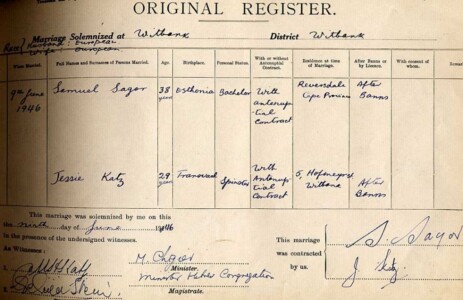 ORIGINAL REGISTER.
Marriage Solemnized at Witbank District Witbank
Race Husband: European
European
When Married. Full Names and Surnames of Persons Married. Age. Birthplace. Personal Status. With or without Antenuptial Contract. Residence at time of Marriage. After Banns or by Licence. With consent of whom.
9th June 1946 Samuel Sagor 38 years Esthonia Bachelor With antenuptial contract Cape Province After Banns
Jessie Katz 29 years Transvaal Spinster With Antenuptial Contract 5, Witbank After Banns
This marriage was solemnized by me on this
the ninth day of June 1946
in the presence of the undersigned witnesses.
As Witness:
1.
Minister.
Minister Hebrew Congregation
Magistrate.
This marriage
was contracted
by us.
S. Sagor
J. Katz